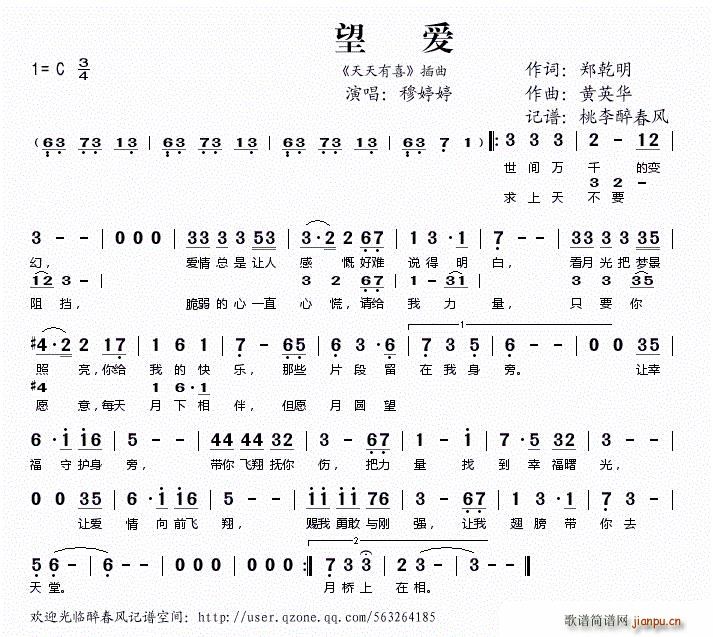 望 爱
1= C 3/4
《天天有喜》插曲
作词：郑乾明
演唱：穆婷婷
作曲：黄英华
记谱：桃李醉春风
(63 73 13 | 63 73 13 | 63 73 13 | 63 7 1) ‖: 3 3 3 | 2 - 12 |
世 间 万 千 的变
3 2 -
求 上 天 不 要
3 - - | 0 0 0 | 33 33 53 | 3·2 2 67 | 1 3·1 | 7 - - | 33 33 35 |
幻， 爱情 总是 让人 感 慨 好难 说得 明 白， 看月 光把 梦景
12 3 - | 3 2 67 1 - 31 3 3 35
阻 挡， 脆弱 的心 一直 心 慌，请给 我 力 量， 只 要 你
#4·2 2 17 | 1 6 1 | 7 - 65 | 6 3·6 | 1 7 3 5 | 7 - - | 0 0 35 |
照 亮，你给 我 的 快 乐， 那些 片 段 留 在 我 身 旁。 让幸
#4 1 6·1
愿 意，每天 月 下 相 伴，但愿 月 圆 望
6·i i6 | 5 - - | 44 44 32 | 3 - 67 | 1 - 1 | 7·5 22 | 5 - - |
福 守 护身 旁， 带你 飞翔 抚你 伤， 把力 量 找 到 幸 福曙 光，
0 0 35 | 6·i i6 | 5 - - | ii ii 76 | 3 - 67 | 1 3·1 | 7 7 6 |
让爱 情 向 前飞 翔， 赐我 勇敢 与刚 强， 让我 翅 膀 带 你 去
5 6 - | 6 - - | 0 0 0 | 0 0 0 :‖ 2 7 3 3 | 2 3 - | 3 - - ‖
天 堂。 月 桥 上 在 相。
欢迎光临醉春风记谱空间：http://user.qzone.qq.com/563264185
歌谱简谱网
jianpu.cn